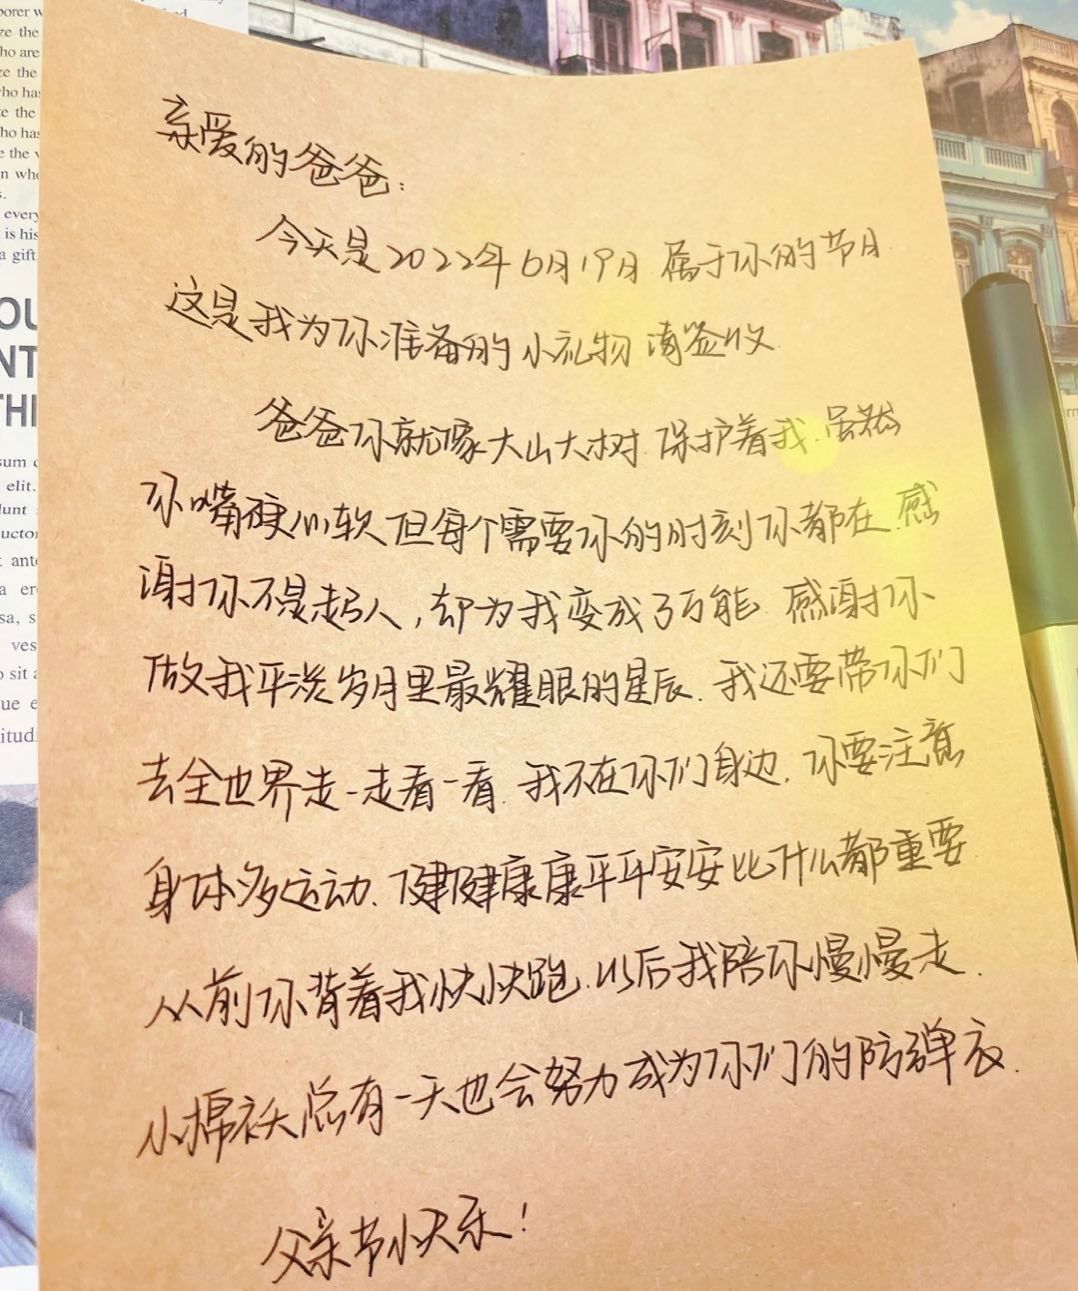 亲爱的爸爸:
今天是2022年6月19月 属于你的节日
这是我为你准备的小礼物 请签收
爸爸你就像大山大树.保护着我.虽然
你嘴硬心软 但每个需要你的时刻你都在.感
谢你不是超人,却为我变成了万能. 感谢你
做我平淡岁月里最耀眼的星辰. 我还要带你们
去全世界走一走看一看. 我不在你们身边. 你要注意
身体多运动. 健健康康平平安安比什么都重要
从前你背着我快快跑.以后我陪你慢慢走.
小棉袄总有一天也会努力成为你们的防弹衣.
父亲节快乐!
orer w
ze the
ho are
ze the
who has
ze the
ho has
e the
n who
every
is his
a gift
OU
NT
THI
sum
elit.
lunt
uctor
ante
a er
sa, s
ves
o sit a
ue e
itudi